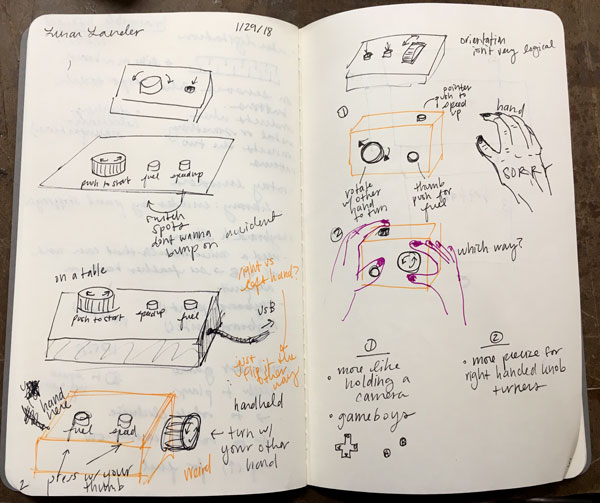 Lunar Lander
1/29/18
push to start
fuel
speedup
switch
spots
dont wanna
bump on accident
on a table
push to start
speedup
fuel
USB
right vs
left hand?
just
flip it the
other
way
hand
here
fuel
speed
handheld
← turn w/
your other
hand
weird
press w/ your
thumb
2
orientation
isn't very logical
①
pointer
push to
speed
up
hand
SORRY
rotate
w/ other
hand
to turn
thumb
push for
fuel
②
which way?
①
• more like
holding a
camera
• gameboys
②
• more precise for
right handed knob
turners